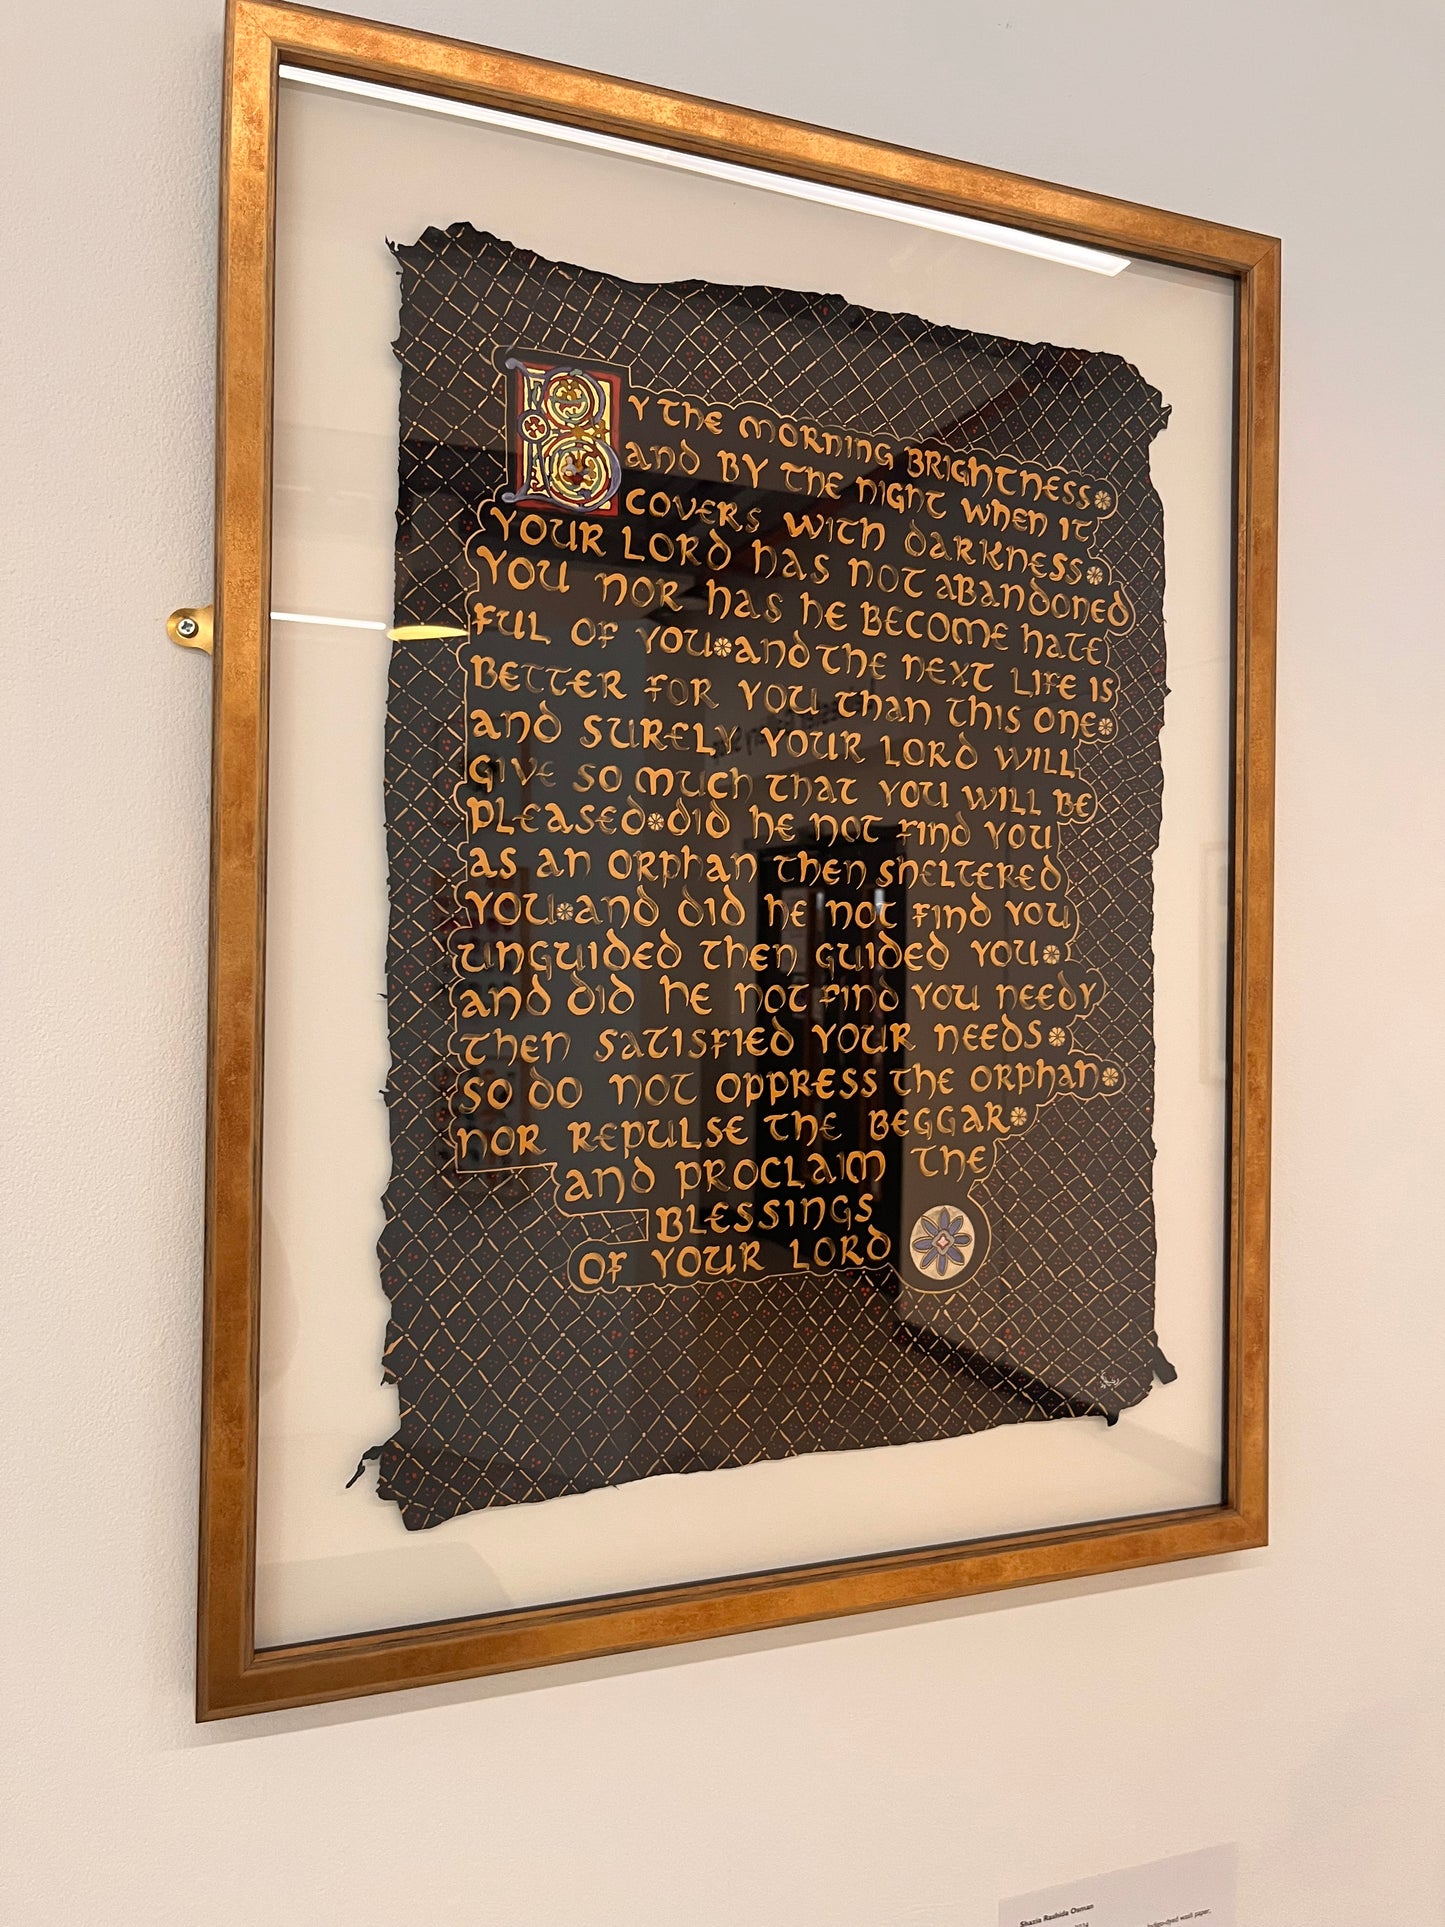 BY THE MORNING BRIGHTNESS
AND BY THE NIGHT WHEN IT
COVERS WITH DARKNESS
YOUR LORD HAS NOT ABANDONED
YOU NOR HAS HE BECOME HATE
FUL OF YOU AND THE NEXT LIFE IS
BETTER FOR YOU THAN THIS ONE
AND SURELY YOUR LORD WILL
GIVE SO MUCH THAT YOU WILL BE
PLEASED DID HE NOT FIND YOU
AS AN ORPHAN THEN SHELTERED
YOU AND DID HE NOT FIND YOU
UNGUIDED THEN GUIDED YOU
AND DID HE NOT FIND YOU NEEDY
THEN SATISFIED YOUR NEEDS
SO DO NOT OPPRESS THE ORPHAN
NOR REPULSE THE BEGGAR
AND PROCLAIM THE
BLESSINGS
OF YOUR LORD
Shazia Rashida Osman